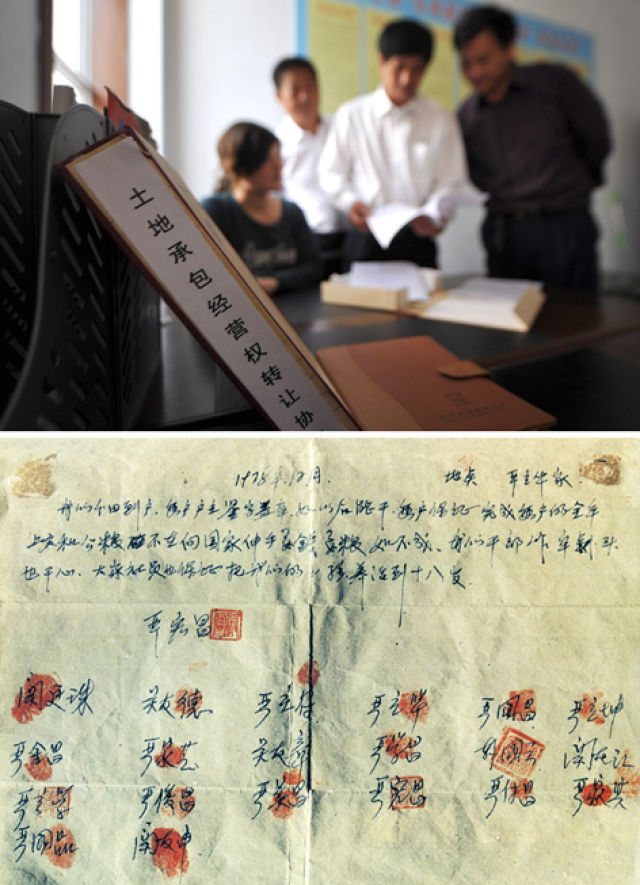 土地承包经营权转让协
1978年12月. 地点 严立华家
我们分田到户,每户户主签字盖章,如以后能干,每户保证完成每户的全年
上交和公粮不在向国家伸手要钱要粮,如不成,我们干部作牢刹头
也干心,大家社员也保证把我们的小孩养活到十八岁.
严宏昌
关廷珠 关友德 严立付 严立华 严国昌 严立坤
严金昌 严家芝 关友章 严学昌 韩国云 关友江
严立学 严俊昌 严美昌 严宏昌 严付昌 严家其
严国品 关友申